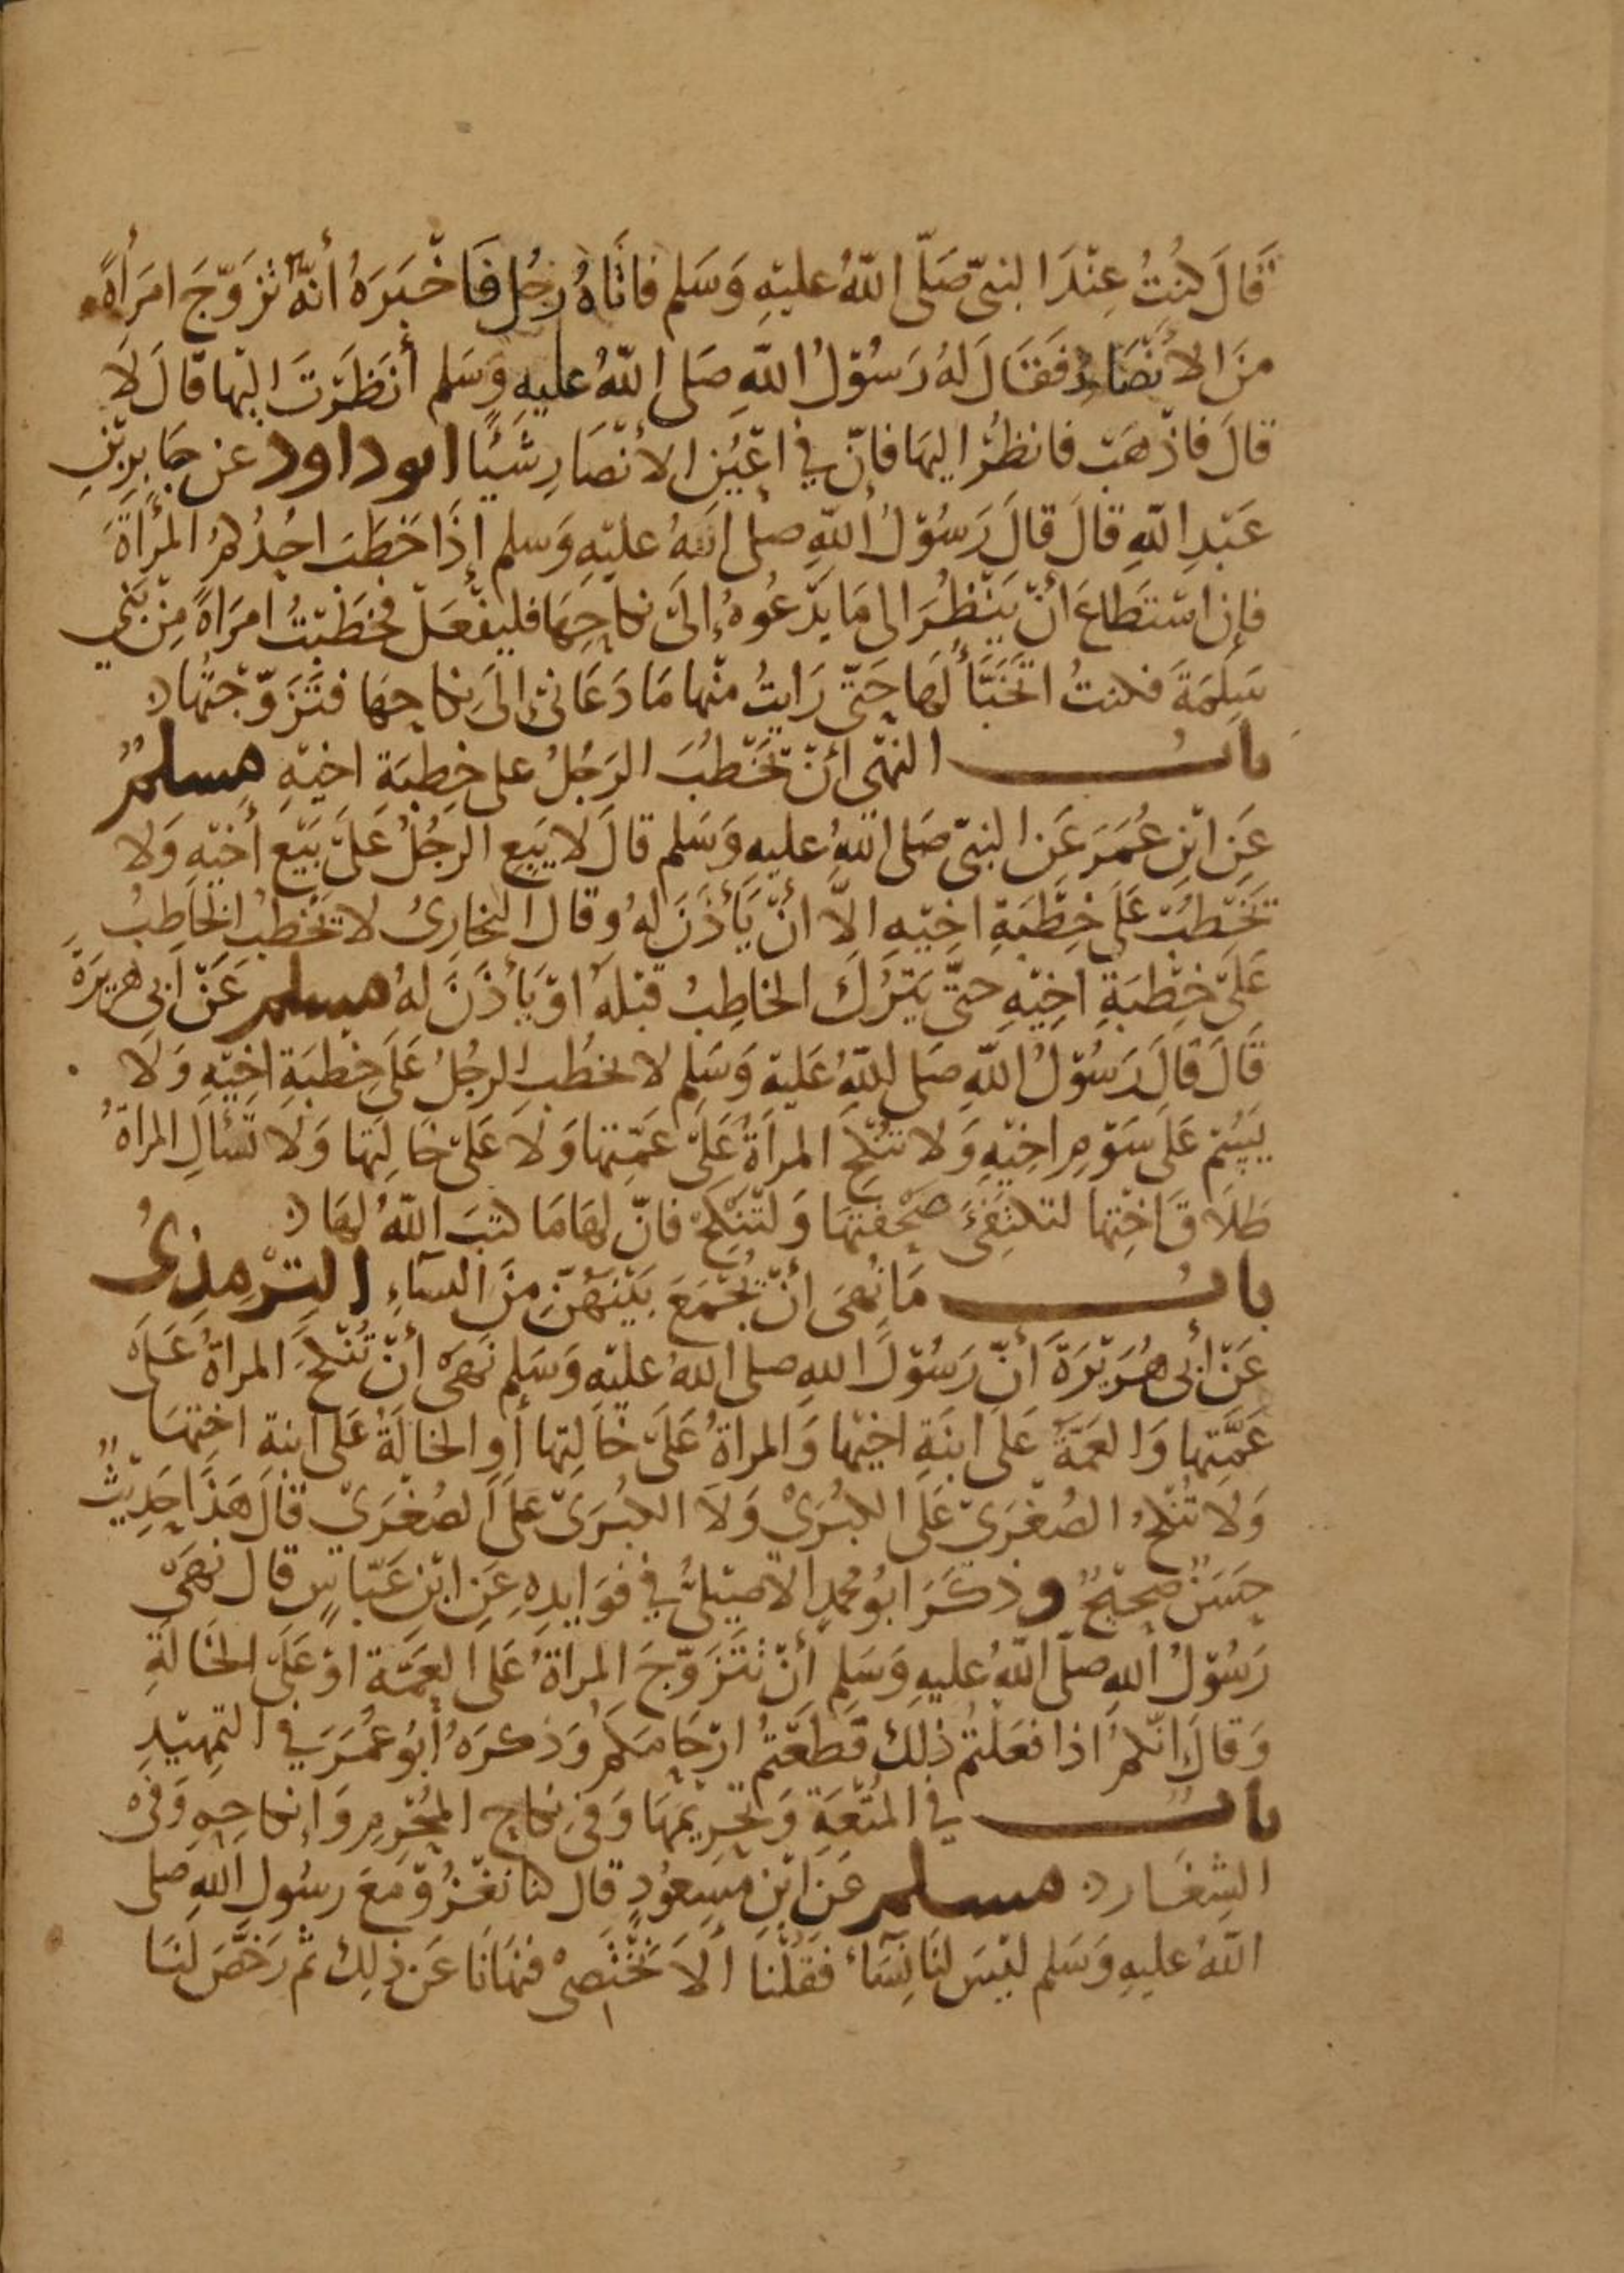 قَالَ كُنْتُ عِنْدَ النبيّ صَلّى اللّهُ عليْهِ وَسَلم فاتَاهُ رَجُل فَاخْبَرَهُ أنّهُ تزَوّجَ امرَأةً
مِنَ الأنْصَارِ فَقَالَ لهُ رَسُوْلُ اللّهِ صَلى اللّهُ عليهِ وَسَلم أنَظَرْتَ اليْها قالَ لَا
قالَ فاذْهَبْ فانظُرْ اليهَا فانّ في اعْيُنِ الأنْصَارِ شَيْئًا ابو داود عن جَابِرِ بْنِ
عَبْدِ اللّهِ قالَ قالَ رَسُوْلُ اللّهِ صلى اللّهُ عليْهِ وَسلم إذَا خَطَبَ احَدُكمُ المرْأةَ
فإن اسْتَطاعَ أنْ يَنْظُرَ الى مَا يَدْعُوهُ إلىَ نكاحِهَا فليفْعَلْ فخطَبْتُ امرَاةً مِنْ بَني
سَلِمَةَ فكنتُ اتخَبّأُ لهَا حَتّى رَايتُ منْها مَا دَعَانى إلىَ نكاحِهَا فتَزَوّجْتُهَا
باب النهْى أنْ يَخْطُبَ الرّجُلُ على خِطبَةِ اخيْهِ مسلمٌ
عَنِ ابْنِ عُمَرَ عَنِ النبيّ صَلى اللّهُ عليهِ وَسَلم قالَ لا يَبِع الرجُلُ عَلَى بَيْعِ أخيْهِ وَلا
يَخْطُبْ عَلَى خِطْبَةِ اخِيْهِ الّا انْ يَأْذَنَ لهُ وقال البخارىُ لا يَخْطُب الخَاطِبُ
عَلَى خِطْبَةِ اخِيْهِ حتّى يَتْرُكَ الخاطِبُ قبْلهُ اوْ يَأْذَنَ لهُ مسلم عَنْ ابى هريرَةَ
قَالَ قَالَ رَسُوْلُ اللّهِ صَلى اللّهُ عَليْهِ وَسَلم لا يخطُب الرجُلُ عَلَى خِطْبَةِ اخِيْهِ وَلَا
يَسُمْ عَلَى سَوْمِ اخِيْهِ وَلا تنْكَح المرأَةُ عَلَى عَمّتِهَا وَلَا عَلَى خَالَتِها وَلا تَسْألِ المراةُ
طَلَاقَ اخْتِهَا لتكتفِئَ صَحْفتهَا وَلتَنْكِحْ فانّ لهَا مَا كتبَ اللّهُ لهَا
باب مَا نُهىَ أنْ يُجْمَعَ بَيْنهُنّ مِنَ النسَاءِ الترمذىُ
عَنْ أبى هُرَيْرَةَ أنّ رَسُوْلَ اللهِ صلى اللهُ عليْهِ وَسَلم نَهىَ أنْ تُنْكحَ المراةُ عَلَى
عَمّتِها وَالعَمّةُ عَلى ابنَةِ اخيْها وَالمراةُ عَلَى خَالتِها أو الخالَةُ عَلى ابنةِ اخْتِهَا
وَلَا تُنْكحُ الصُغْرَىْ عَلَى الكبْرَىْ وَلَا الكبْرَىْ عَلَى الصُغْرَىْ قالَ هَذَا حَدِيْثٌ
حَسَنٌ صحيحٌ وذكَرَ ابُو مُحمدٍ الأصيْلىُّ في فوَايدِهِ عَنِ ابْنِ عَبّاسٍ قال نهىَ
رَسُوْلُ اللهِ صَلّى اللّهُ عليهِ وَسَلم أنْ تتَزَوّجَ المراةُ عَلى العمّة اوْ عَلَى الخَالَةِ
وَقالَ انّكمُ اذا فعَلتُم ذلِك قَطعْتُمُ ارْحَامَكم وَذكرَهُ أبُو عُمَرَ في التمهيْدِ
باب في المتْعَةِ وَتحْرِيْمهَا وَفى نكاحِ المحْرِمِ وَإنكاحِهِ وَفى
الشِغَار مسلم عَنِ ابْنِ مسعُودٍ قال كنا نغْزُوْ مَعَ رسُولِ اللّهِ صلى
اللّهُ عليهِ وَسَلم ليْسَ لنَا نِسَاءٌ فقُلْنا ألَا نخْتَصِىْ فنهَانَا عَن ذلِك ثم رَخّصَ لنَا